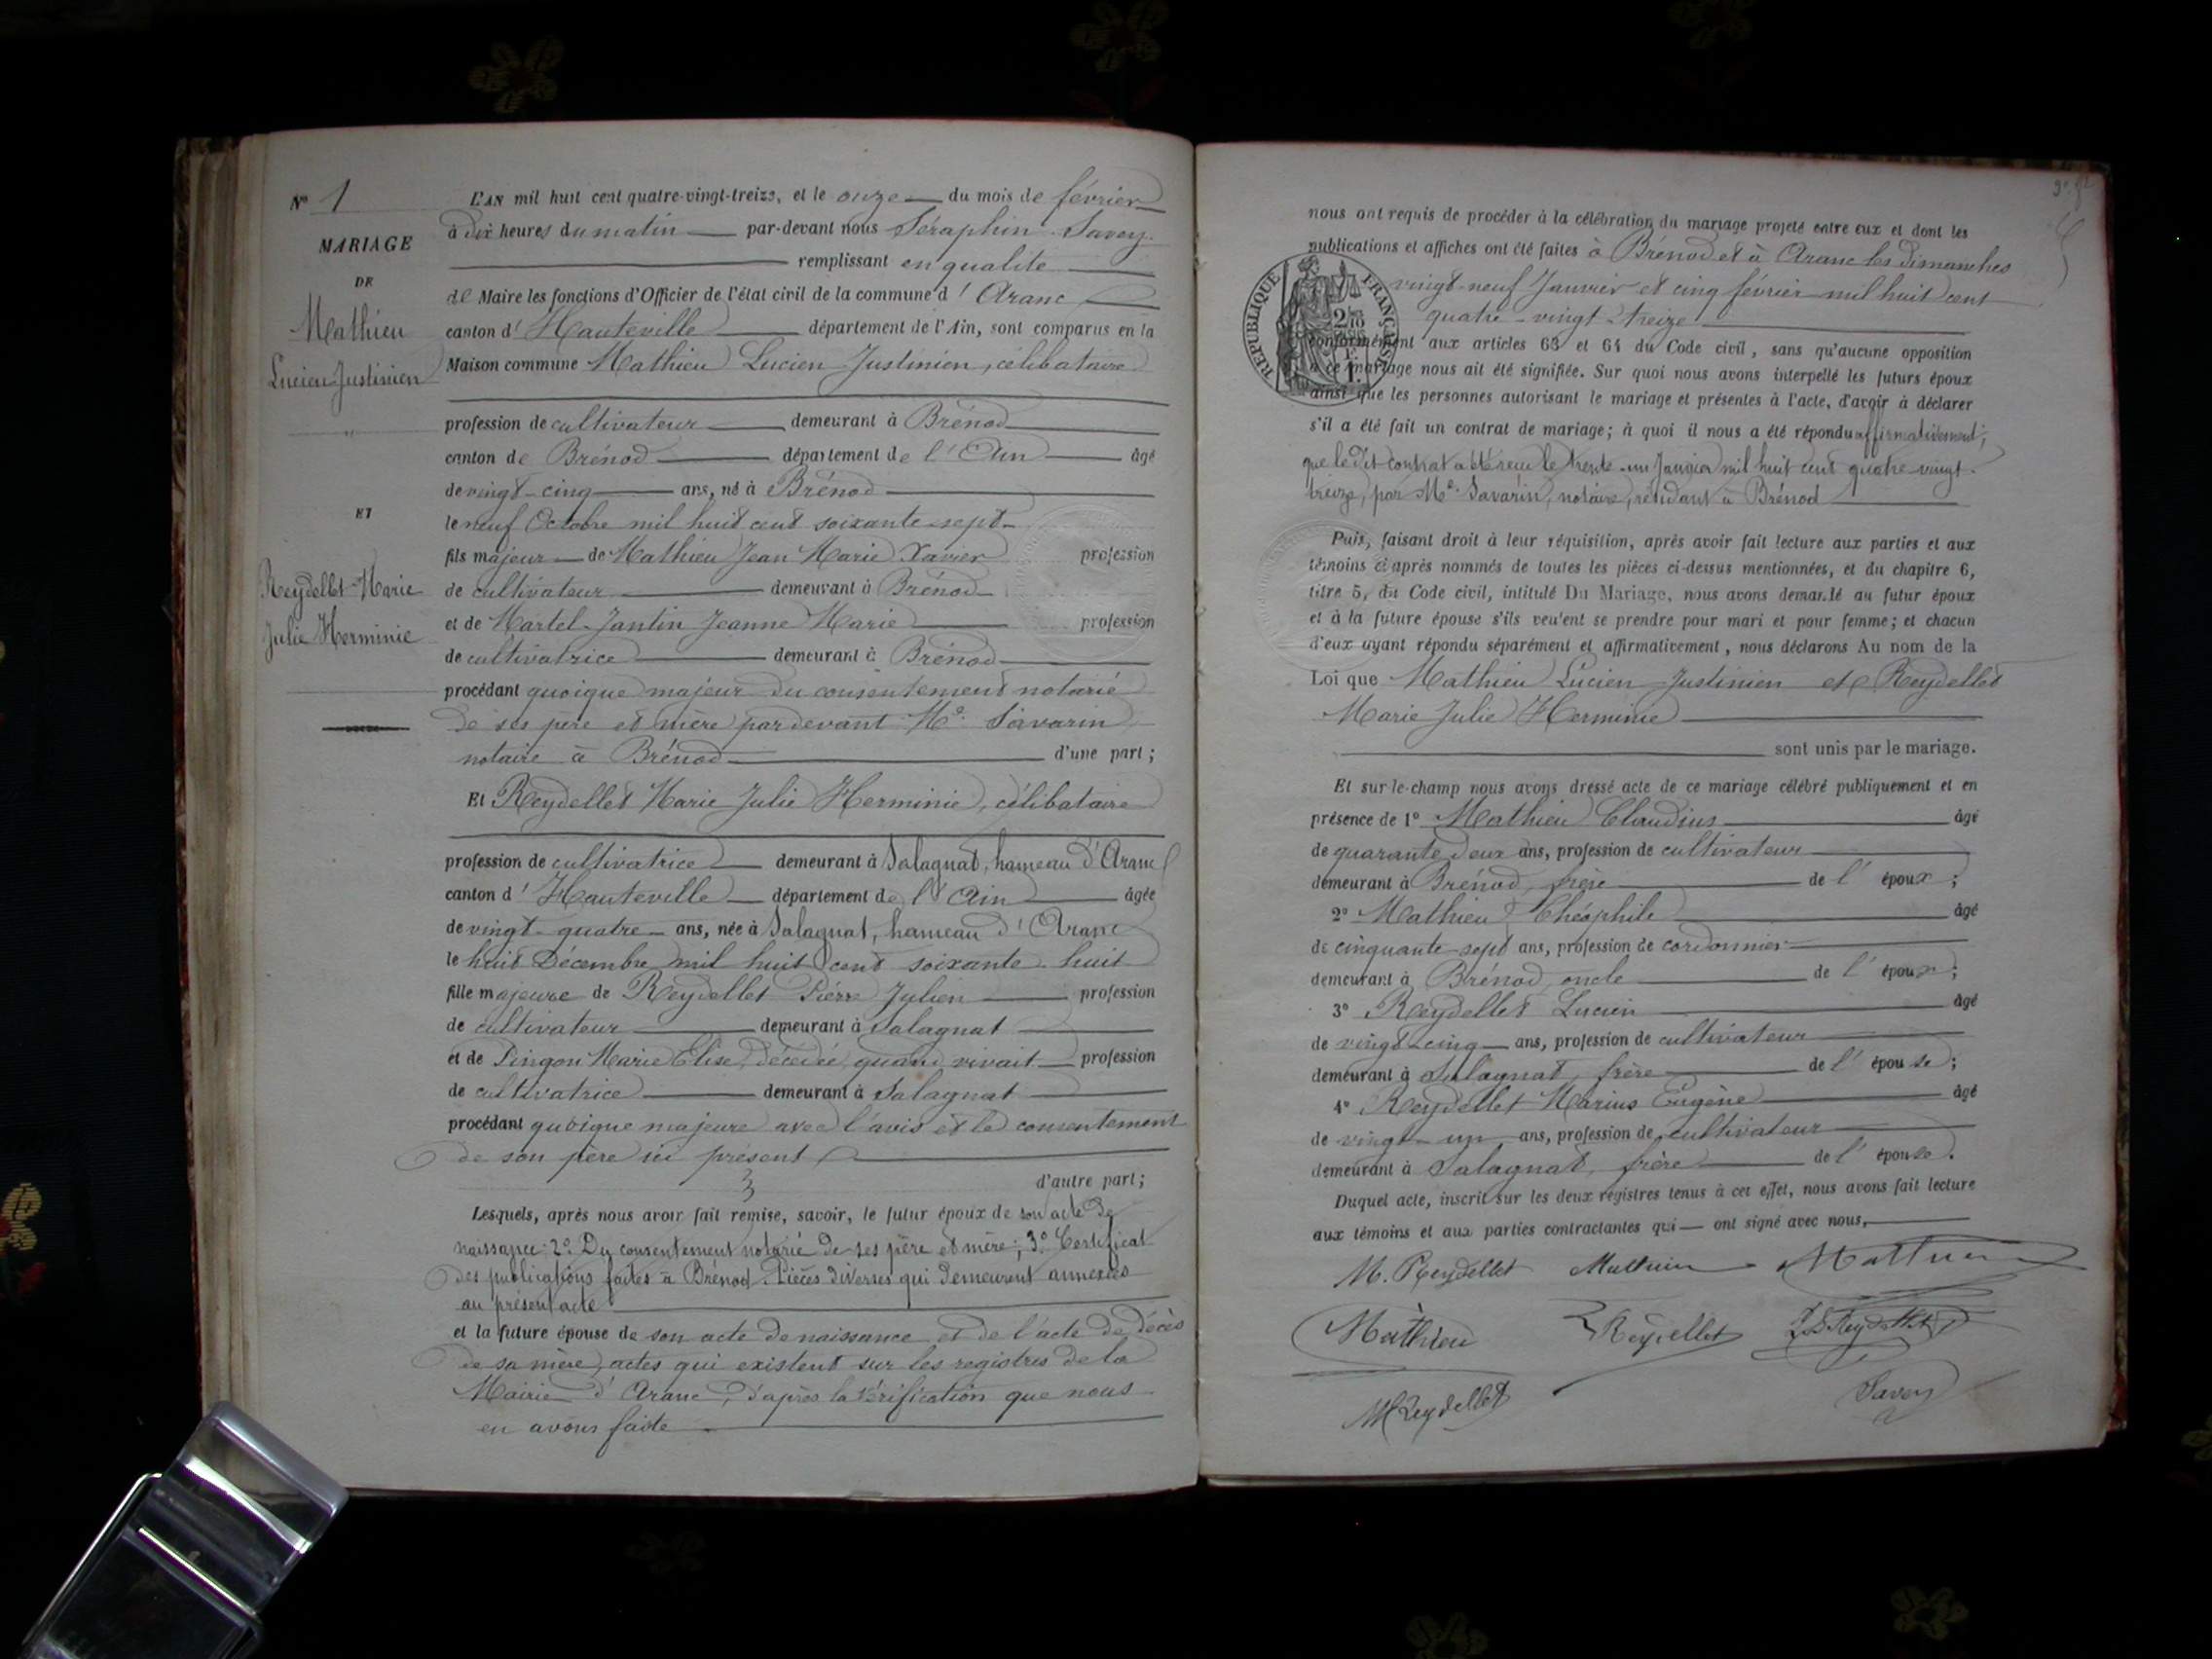 Nº 1
MARIAGE
DE
Mathieu
Lucien Justinien
"
ET
Reydellet Marie
Julie Herminie
L'AN mil huit cent quatre-vingt-treize, et le onze du mois de février
à dix heures du matin par-devant nous Séraphin Savey
remplissant en qualité
de Maire les fonctions d'Officier de l'état civil de la commune d' Aranc
canton d' Hauteville département de l'Ain, sont comparus en la
Maison commune Mathieu Lucien Justinien, célibataire
profession de cultivateur demeurant à Brénod
canton de Brénod département de l'Ain âgé
de vingt-cinq ans, né à Brénod
le neuf Octobre mil huit cent soixante-sept
fils majeur de Mathieu Jean Marie Xavier profession
de cultivateur demeurant à Brénod
et de Martel-Jantin Jeanne Marie profession
de cultivatrice demeurant à Brénod
procédant quoique majeur du consentement notarié
de ses père et mère pardevant Me Savarin
notaire à Brénod d'une part;
Et Reydellet Marie Julie Herminie, célibataire
profession de cultivatrice demeurant à Salagnat, hameau d'Aranc
canton d' Hauteville département de l'Ain âgée
de vingt-quatre ans, née à Salagnat, hameau d'Aranc
le huit Décembre mil huit cent soixante huit
fille majeure de Reydellet Pierre Julien profession
de cultivateur demeurant à Salagnat
et de Pingon Marie Elise, décédée, quand vivait profession
de cultivatrice demeurant à Salagnat
procédant quoique majeure avec l'avis et le consentement
de son père ici présent
d'autre part;
Lesquels, après nous avoir fait remise, savoir, le futur époux de son acte de
naissance; 2º Du consentement notarié de ses père et mère; 3º Certificat
des publications faites à Brénod. Pièces diverses qui demeurent annexées
au présent acte
et la future épouse de son acte de naissance et de l'acte de décès
de sa mère, actes qui existent sur les registres de la
Mairie d'Aranc, d'après la vérification que nous
en avons faite
nous ont requis de procéder à la célébration du mariage projeté entre eux et dont les
publications et affiches ont été faites à Brénod et à Aranc les dimanches
vingt-neuf Janvier et cinq février mil huit cent
quatre-vingt-treize
RÉPUBLIQUE FRANÇAISE
conformément aux articles 63 et 64 du Code civil, sans qu'aucune opposition
à ce mariage nous ait été signifiée. Sur quoi nous avons interpellé les futurs époux
ainsi que les personnes autorisant le mariage et présentes à l'acte, d'avoir à déclarer
s'il a été fait un contrat de mariage; à quoi il nous a été répondu affirmativement;
que le dit contrat a été reçu le trente-un Janvier mil huit cent quatre vingt-
treize, par Me Savarin, notaire, résidant à Brénod
Puis, faisant droit à leur réquisition, après avoir fait lecture aux parties et aux
témoins ci-après nommés de toutes les pièces ci-dessus mentionnées, et du chapitre 6,
titre 5, du Code civil, intitulé Du Mariage, nous avons demandé au futur époux
et à la future épouse s'ils veulent se prendre pour mari et pour femme; et chacun
d'eux ayant répondu séparément et affirmativement, nous déclarons Au nom de la
Loi que Mathieu Lucien Justinien et Reydellet
Marie Julie Herminie
sont unis par le mariage.
Et sur-le-champ nous avons dressé acte de ce mariage célébré publiquement et en
présence de 1º Mathieu Claudius âgé
de quarante deux ans, profession de cultivateur
demeurant à Brénod, frère de l' époux;
2º Mathieu Théophile âgé
de cinquante-sept ans, profession de cordonnier
demeurant à Brénod, oncle de l' époux;
3º Reydellet Lucien âgé
de vingt-cinq ans, profession de cultivateur
demeurant à Salagnat, frère de l' épouse;
4º Reydellet Marius Eugène âgé
de vingt-un ans, profession de cultivateur
demeurant à Salagnat, frère de l' épouse.
Duquel acte, inscrit sur les deux registres tenus à cet effet, nous avons fait lecture
aux témoins et aux parties contractantes qui ont signé avec nous,
M. Reydellet Mathieu Mathieu
Mathieu Reydellet Reydellet
M Reydellet Savey